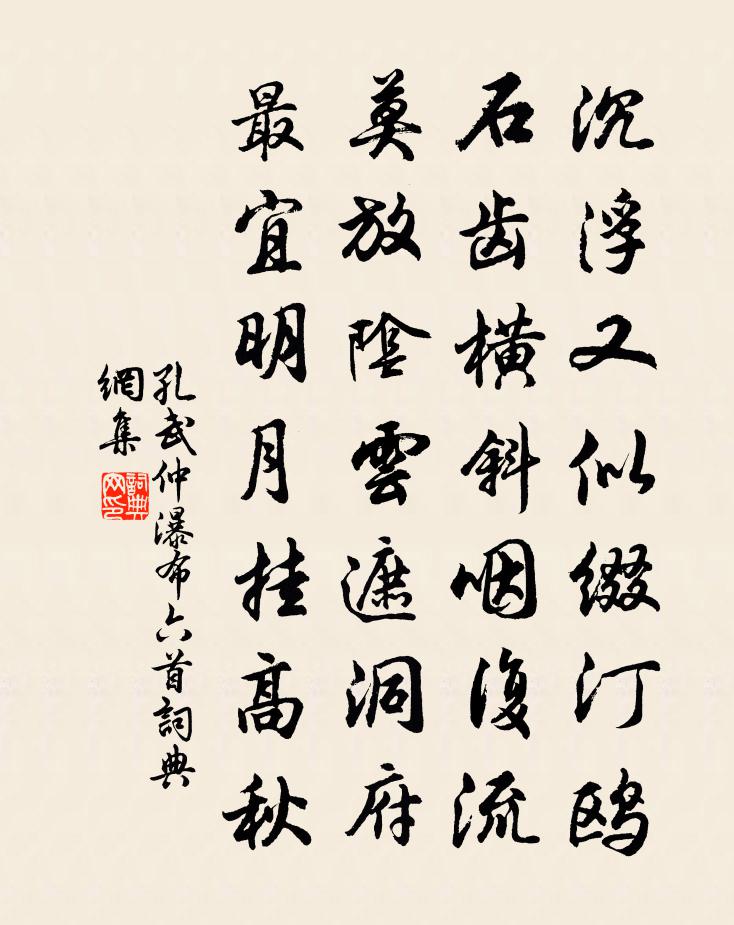 沉浮又似缀汀鸥
石齿横斜咽復流
莫放陰雲遮洞府
最宜明月挂高秋
孔武仲瀑布六首詞典
網集
詞典
网印